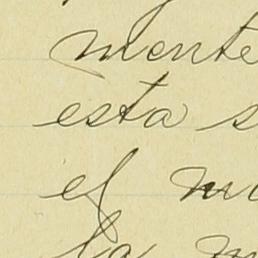 mente
esta s
el m
la m